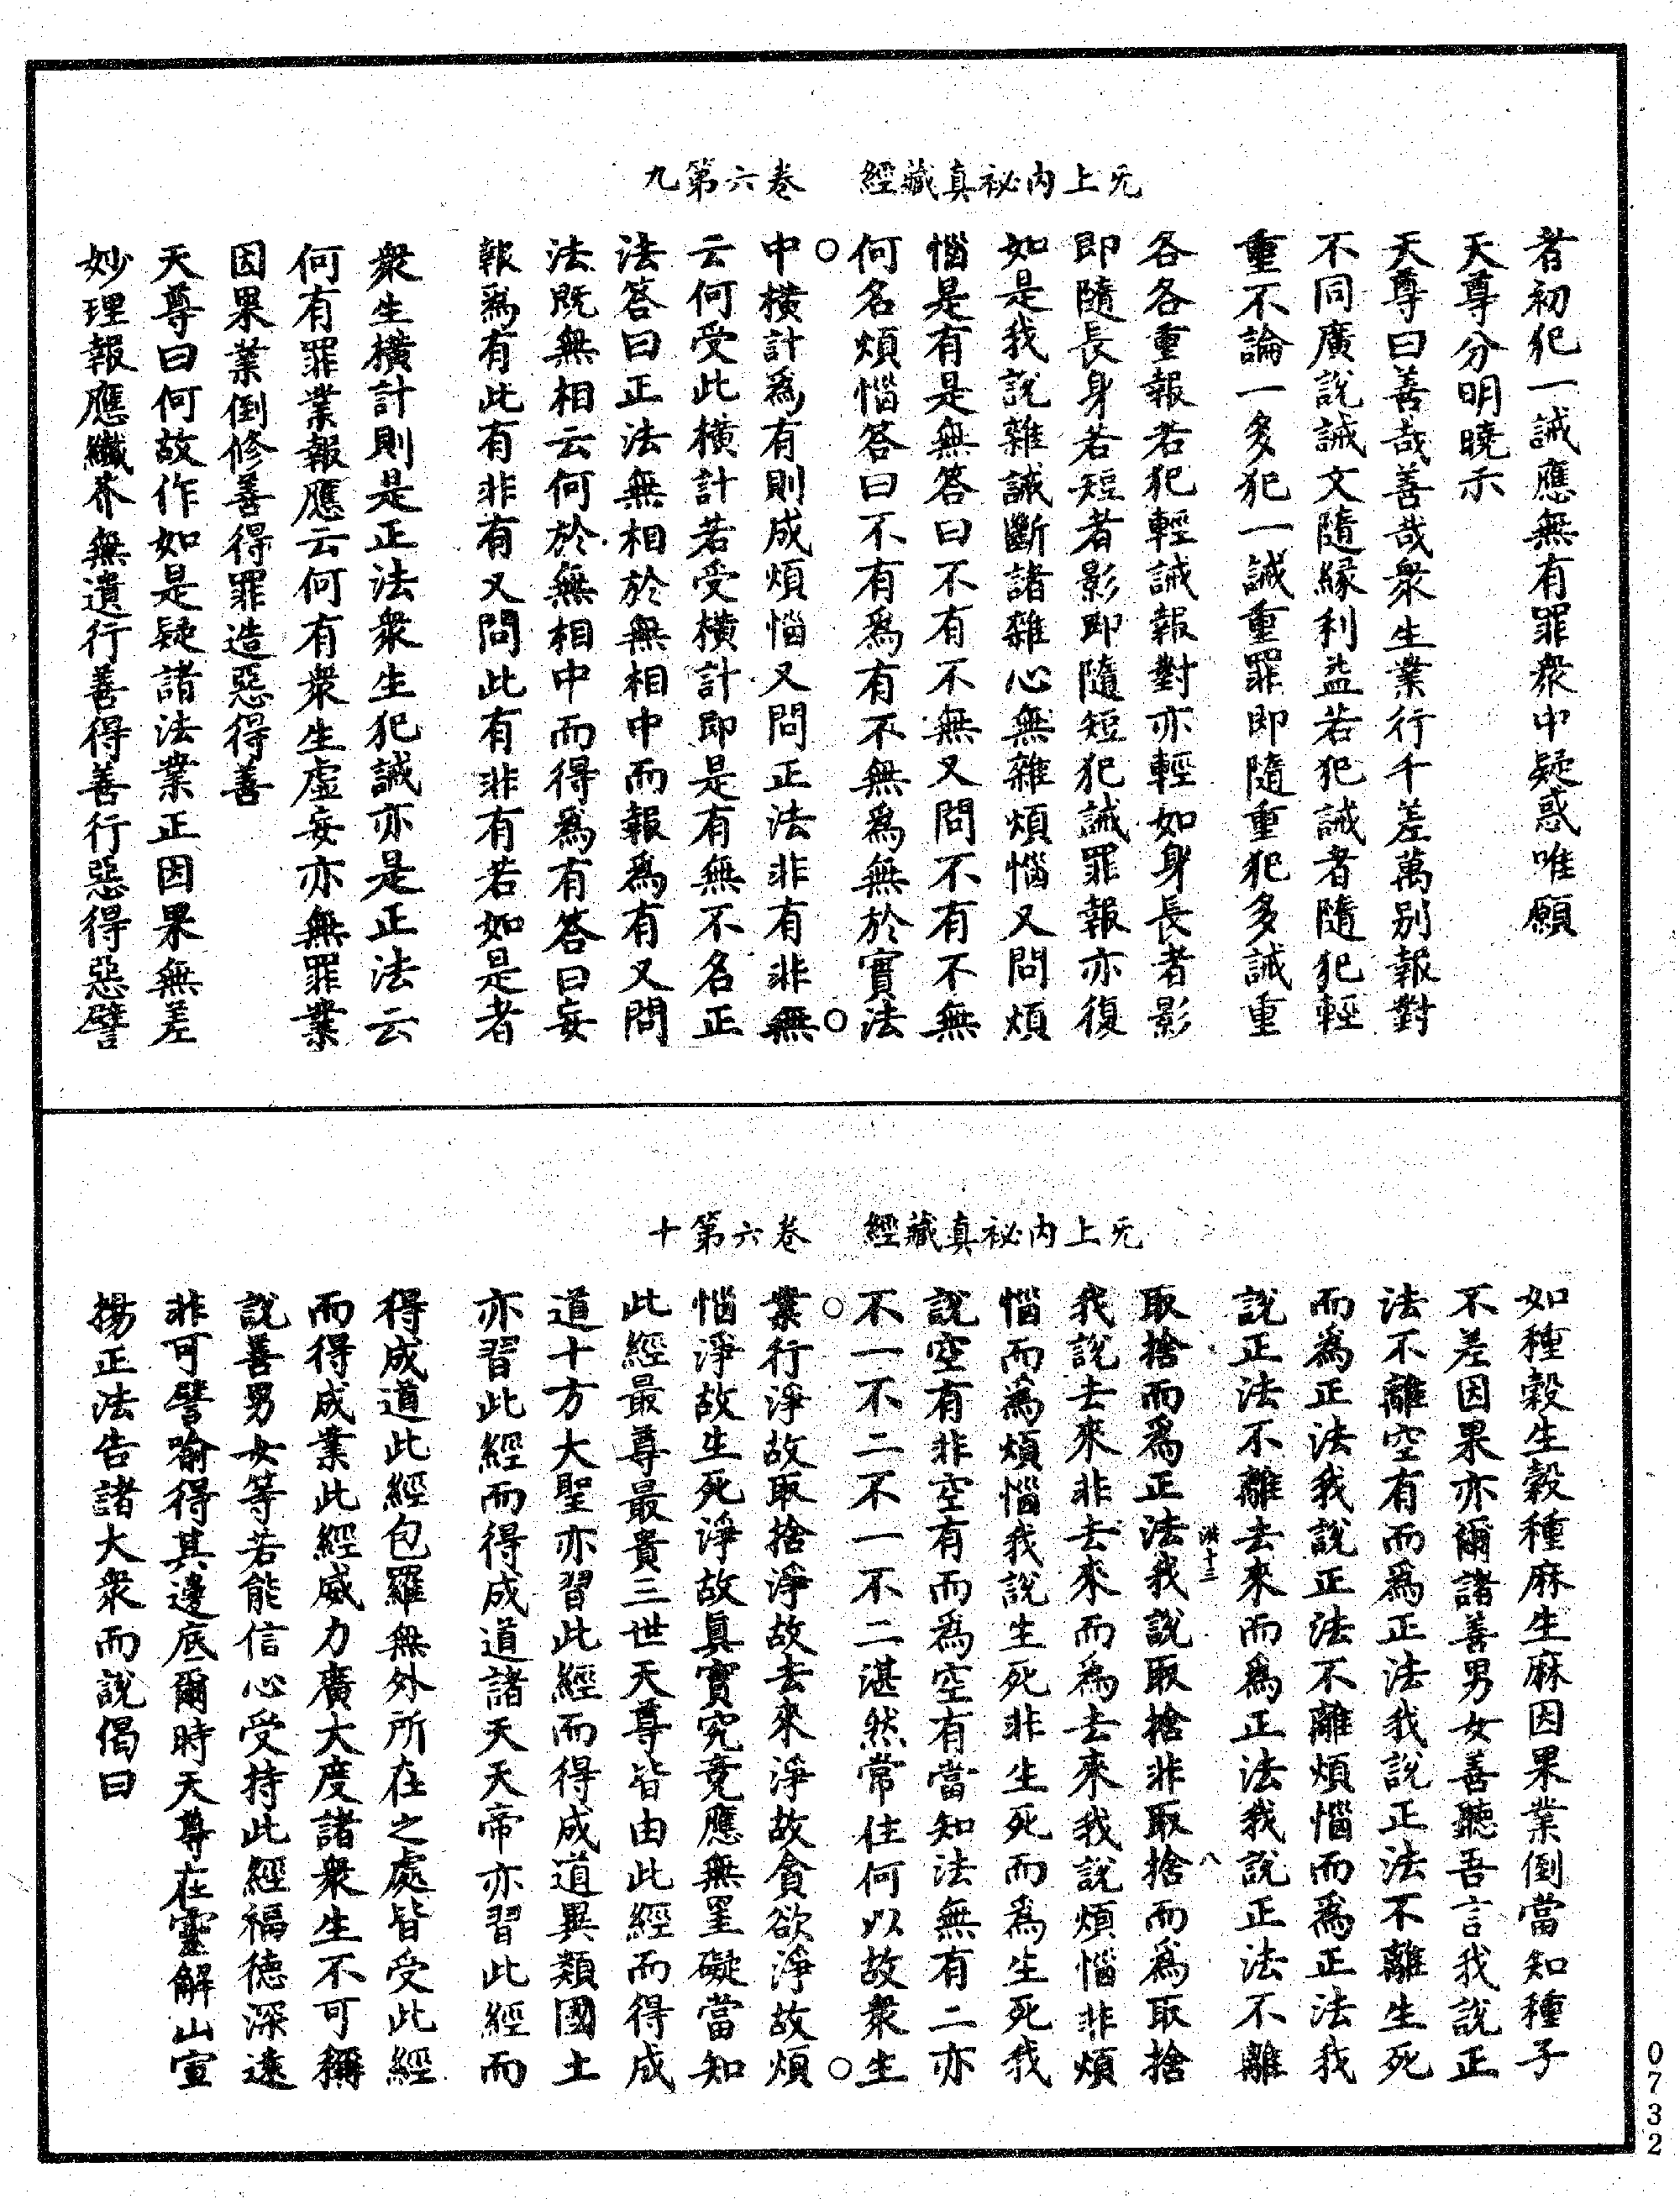 无上內祕真藏經 卷六第九
者初犯一誡應無有罪衆中疑惑唯願
天尊分明曉示
天尊曰善哉善哉衆生業行千差萬别報對
不同廣說誡文隨緣利益若犯誡者隨犯輕
重不論一多犯一誡重罪即隨重犯多誡重
各各重報若犯輕誡報對亦輕如身長者影
即隨長身若短者影即隨短犯誡罪報亦復
如是我說雜誡斷諸雜心無雜煩惱又問煩
惱是有是無答曰不有不無又問不有不無
何名煩惱答曰不有爲有不無爲無於實法
中橫計爲有則成煩惱又問正法非有非無
云何受此橫計若受橫計即是有無不名正
法答曰正法無相於無相中而報爲有又問
法既無相云何於無相中而得爲有答曰妄
報爲有此有非有又問此有非有若如是者
衆生橫計則是正法衆生犯誡亦是正法云
何有罪業報應云何有衆生虛妄亦無罪業
因果業倒修善得罪造惡得善
天尊曰何故作如是疑諸法業正因果無差
妙理報應纖芥無遺行善得善行惡得惡譬
无上內祕真藏經 卷六第十
如種穀生穀種麻生麻因果業倒當知種子
不差因果亦爾諸善男女善聽吾言我說正
法不離空有而爲正法我說正法不離生死
而爲正法我說正法不離煩惱而爲正法我
說正法不離去來而爲正法我說正法不離
取捨而爲正法我說取捨非取捨而爲取捨
我說去來非去來而爲去來我說煩惱非煩
惱而爲煩惱我說生死非生死而爲生死我
說空有非空有而爲空有當知法無有二亦
不一不二不一不二湛然常住何以故衆生
業行淨故取捨淨故去來淨故貪欲淨故煩
惱淨故生死淨故真實究竟應無罣礙當知
此經最尊最貴三世天尊皆由此經而得成
道十方大聖亦習此經而得成道異類國土
亦習此經而得成道諸天天帝亦習此經而
得成道此經包羅無外所在之處皆受此經
而得成業此經威力廣大度諸衆生不可稱
說善男女等若能信心受持此經福德深遠
非可譬喻得其邊底爾時天尊在靈解山宣
揚正法告諸大衆而說偈曰
十三
八
0732